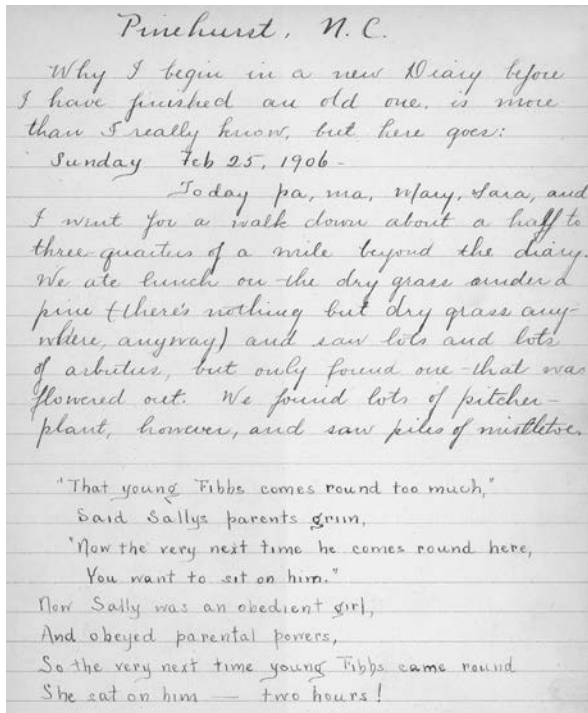 Pinehurst, N.C.
Why I begin in a new Diary before
I have finished an old one, is more
than I really know, but here goes:
Sunday Feb 25, 1906-
Today pa, ma, Mary, Sara, and
I went for a walk down about a half to
three-quarters of a mile beyond the diary.
We ate lunch on the dry grass under a
pine (there's nothing but dry grass any-
where, anyway) and saw lots and lots
of arbutus, but only found one that was
flowered out. We found lots of pitcher-
plant, however, and saw piles of mistletoe.
"That young Fibbs comes round too much,"
Said Sallys parents grim,
"Now the very next time he comes round here,
You want to sit on him."
Now Sally was an obedient girl,
And obeyed parental powers,
So the very next time young Fibbs came round
She sat on him — two hours!